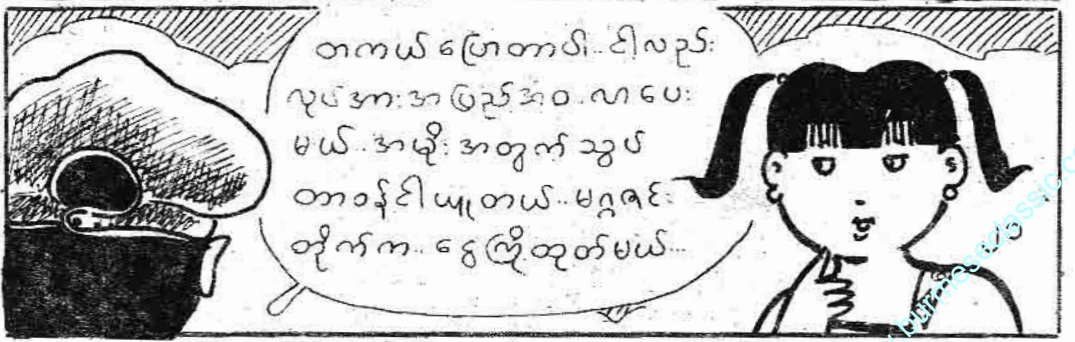 တကယ် ပြောတာပါ.. ငါလည်း
လုပ်အားအပြည့်အဝ..လာပေး
မယ်..အမိုးအတွက် သွပ်
တာဝန်ငါယူတယ်..မဂ္ဂဇင်း
တိုက်က..ငွေကြိုထုတ်မယ်...
burmeseclassic.co